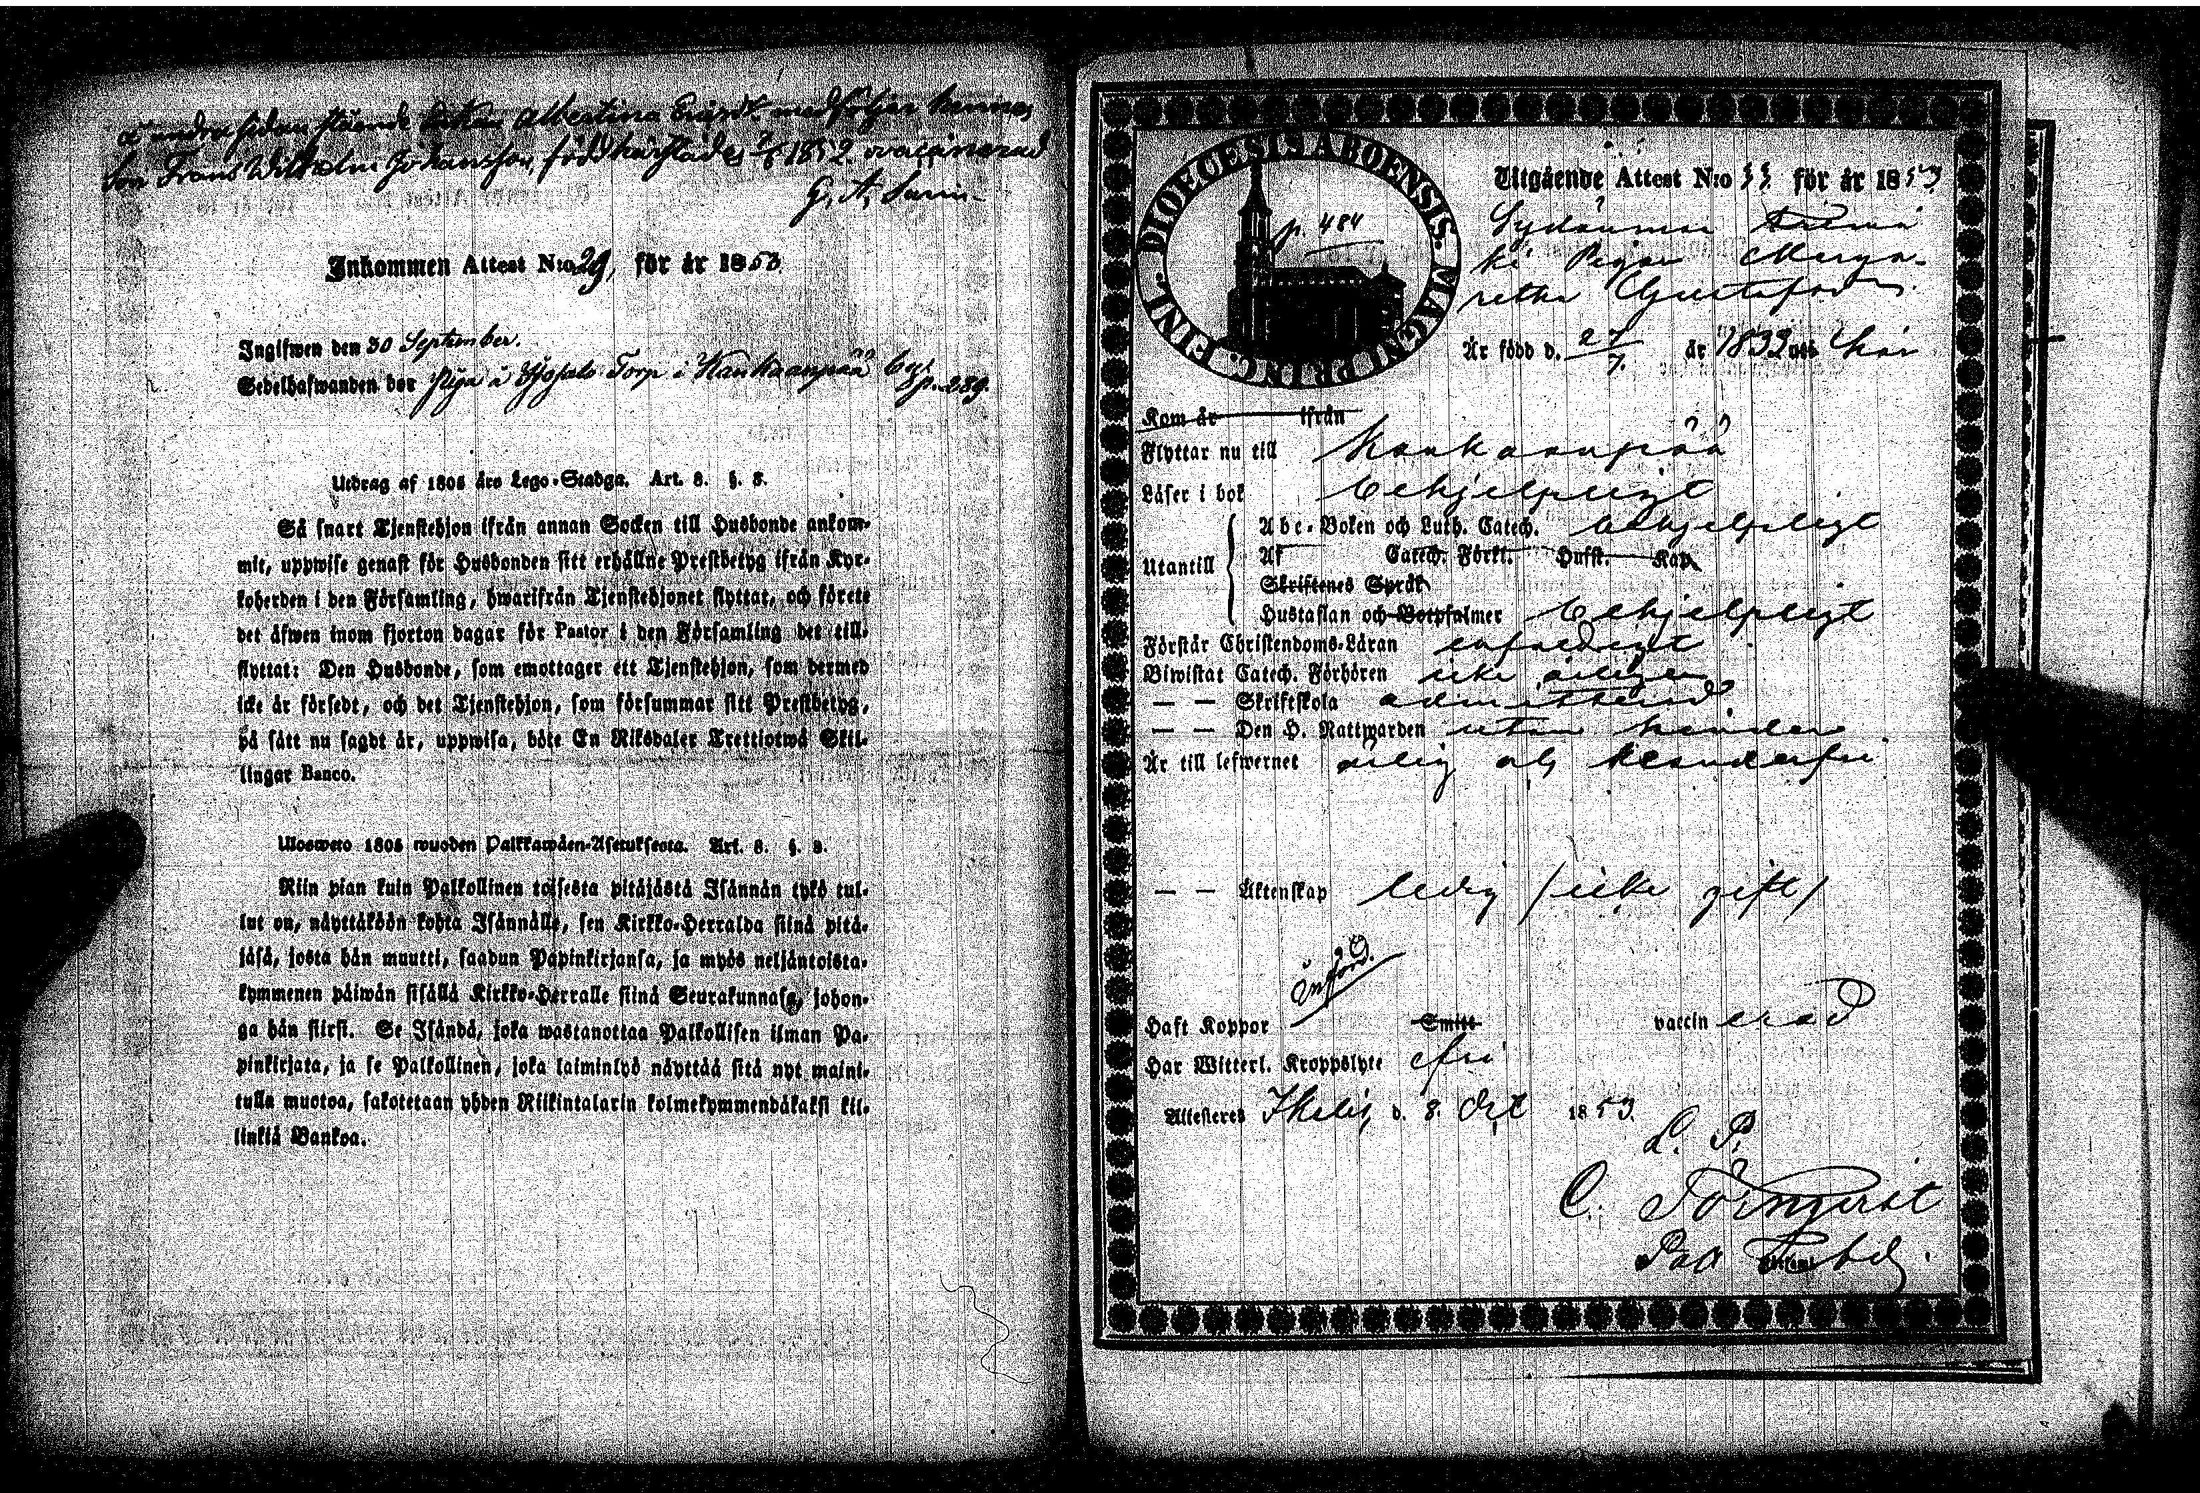 å andra sidan stående Enkan Albertina Eriksd. medföljer hennes
Son Frans Wilhelm Johansson, född härstädes 1852. ovaccinerad
G. A.
Inkommen Attest N:o 29, för år 1853
Ingifwen den 30 September.
Sedelhafwanden bor piga å Torp i Kankaanpää by p. 289.
Utdrag af 1805 års Lego-Stadga. Art. 8. §. 8.
Så snart Tjenstehjon ifrån annan Socken till Husbonde ankom-
mit, uppwise genast för Husbonden sitt erhållne Prestbetyg ifrån Kyr-
koherden i den Församling, hwarifrån Tjenstehjonet flyttat, och förete
det äfwen inom fjorton dagar för Pastor i den Församling det till-
flyttat: Den Husbonde, som emottager ett Tjenstehjon, som dermed
icke är försedt, och det Tjenstehjon, som försummar sitt Prestbetyg,
på sätt nu sagdt är, uppwisa, böte En Riksdaler Trettiotwå Skil-
lingar Banco.
Uloswето 1805 wuoden Palkkawäen-Asetuksesta. Art. 8. §. 8.
Niin pian kuin Palkollinen toisesta pitäjästä Isännän tykö tul-
lut on, näyttäköön kohta Isännälle, sen Kirkko-Herralda siinä pitä-
jäsä, josta hän muutti, saadun Papinkirjansa, ja myös neljäntoista-
kymmenen päiwän sisällä Kirkko-Herralle siinä Seurakunnasa, johon-
ga hän siirsi. Se Isändä, joka wastanottaa Palkollisen ilman Pa-
pinkirjata, ja se Palkollinen, joka laiminlyö näyttää sitä nyt maini-
tulla muotoa, sakotetaan yhden Riikintalarin kolmekymmendäkaksi kil-
linkiä Bankoa.
DIOECESIS ABOENSIS. MAGNI PRINC. FINL.
p. 484
Utgående Attest N:o 33 för år 1853
Pigan Marga-
retha Gustafsd.
Är född d. 27/7. år 1832 uti här
Kom år ifrån
Flyttar nu till Kankaanpää
Läser i bok behjelpligt
Utantill
Abc-Boken och Luth. Catech. behjelpligt
Af Catech. Förkl. Hufst. Kap.
Skriftenes Språk
Hustaflan och Botpsalmer behjelpligt
Förstår Christendoms-Läran enfaldigt
Biwistat Catech. Förhören icke årligen
— — Skriftskola admitterad
— — Den H. Nattwarden utan hinder
Är till lefwernet ärlig och klanderfri
— — Äktenskap ledig /icke gift/
Införd.
Haft Koppor Smitt vaccinerad
Har Witterl. Kroppslyte fri
Attesteres Ikalis d. 8 Oct 1853.
C. Törnqvist